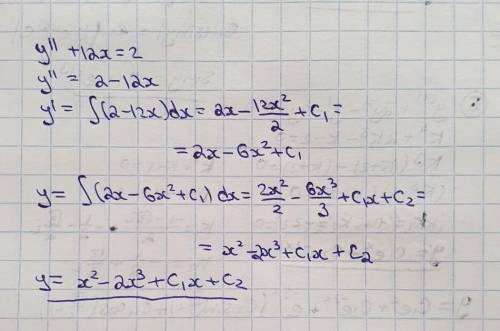 y'' + 12x = 2
y'' = 2 - 12x
y' = ∫(2-12x)dx = 2x - 12x²/2 + C₁ =
= 2x - 6x² + C₁
y = ∫(2x - 6x² + C₁)dx = 2x²/2 - 6x³/3 + C₁x + C₂ =
= x² - 2x³ + C₁x + C₂
y = x² - 2x³ + C₁x + C₂